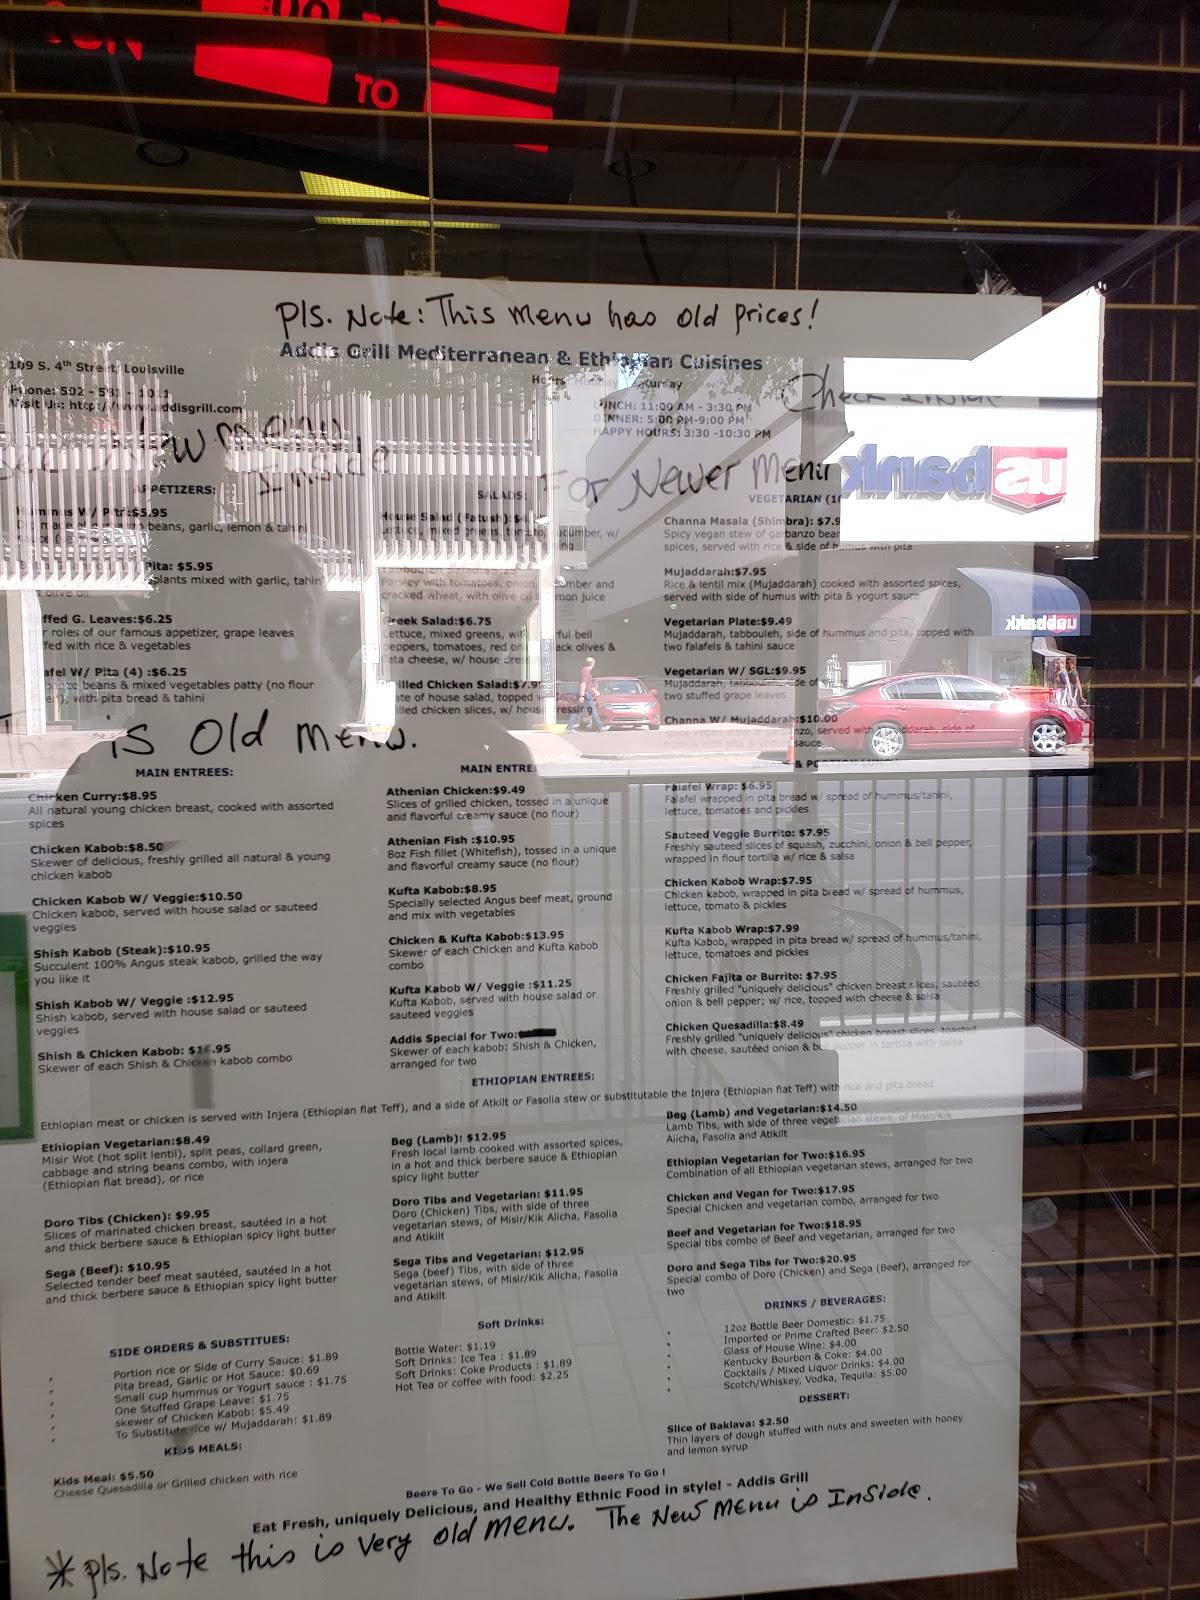 TO
Pls. Note: This menu has old prices!
Addis Grill Mediterranean & Ethiopian Cuisines
109 S. 4th Street, Louisville
Phone: 502 -
Visit Us: http://www.addisgrill.com
LUNCH: 11:00 AM - 3:30 PM
DINNER: 5:00 PM-9:00 PM
HAPPY HOURS: 3:30 -10:30 PM
Check Inside
New menu
Inside
For Newer Menu
us bank
APPETIZERS:
W/ Pita:$5.95
beans, garlic, lemon & tahini
Pita: $5.95
plants mixed with garlic, tahini
olive oil
ffed G. Leaves:$6.25
r roles of our famous appetizer, grape leaves
fed with rice & vegetables
afel W/ Pita (4) :$6.25
beans & mixed vegetables patty (no flour
with pita bread & tahini
is Old menu.
SALADS:
House Salad (Fatush):
Lettuce, mixed greens, tomato, cucumber, w/
Parsley with tomatoes, onion,
cracked wheat, with olive oil
Greek Salad:$6.75
Lettuce, mixed greens,
peppers, tomatoes, red
ack olives &
eta cheese, w/ house
illed Chicken Salad:
ate of house salad, topped
illed chicken slices, w/ house dressing
VEGETARIAN
Channa Masala (Shimbra): $7.9
Spicy vegan stew of garbanzo
spices, served with rice & side of humus with pita
Mujaddarah:$7.95
Rice & lentil mix (Mujaddarah) cooked with assorted spices,
served with side of humus with pita & yogurt sauce
Vegetarian Plate:$9.49
Mujaddarah, tabbouleh, side of hummus and pita, topped with
two falafels & tahini sauce
Vegetarian W/ SGL:$9.95
Mujaddarah, tabbouleh, side of
two stuffed grape leaves
Channa W/ Mujaddarah:$10.00
served with
side of
sauce
MAIN ENTREES:
Chicken Curry:$8.95
All natural young chicken breast, cooked with assorted
spices
Chicken Kabob:$8.50
Skewer of delicious, freshly grilled all natural & young
chicken kabob
Chicken Kabob W/ Veggie:$10.50
Chicken kabob, served with house salad or sauteed
veggies
Shish Kabob (Steak):$10.95
Succulent 100% Angus steak kabob, grilled the way
you like it
Shish Kabob W/ Veggie :$12.95
Shish kabob, served with house salad or sauteed
veggies
Shish & Chicken Kabob:
Skewer of each Shish & Chicken kabob combo
MAIN ENTRE
Athenian Chicken:$9.49
Slices of grilled chicken, tossed in a unique
and flavorful creamy sauce (no flour)
Athenian Fish :$10.95
8oz Fish fillet (Whitefish), tossed in a unique
and flavorful creamy sauce (no flour)
Kufta Kabob:$8.95
Specially selected Angus beef meat, ground
and mix with vegetables
Chicken & Kufta Kabob:$13.95
Skewer of each Chicken and Kufta kabob
combo
Kufta Kabob W/ Veggie :$11.25
Kufta Kabob, served with house salad or
sauteed veggies
Addis Special for Two:
Skewer of each kabob: Shish & Chicken,
arranged for two
Falafel Wrap: $6.95
Falafel wrapped in pita bread w/ spread of hummus/tahini,
lettuce, tomatoes and pickles
Sauteed Veggie Burrito: $7.95
Freshly sauteed slices of squash, zucchini, onion & bell pepper,
wrapped in flour tortilla w/ rice & salsa
Chicken Kabob Wrap:$7.95
Chicken kabob, wrapped in pita bread w/ spread of hummus,
lettuce, tomato & pickles
Kufta Kabob Wrap:$7.99
Kufta Kabob, wrapped in pita bread w/ spread of hummus/tahini,
lettuce, tomatoes and pickles
Chicken Fajita or Burrito: $7.95
Freshly grilled "uniquely delicious" chicken breast slices, sautéed
onion & bell pepper; w/ rice, topped with cheese & salsa
Chicken Quesadilla:$8.49
Freshly grilled "uniquely delicious" chicken breast slices, toasted
with cheese, sautéed onion & bell pepper in tortilla with salsa
ETHIOPIAN ENTREES:
Ethiopian meat or chicken is served with Injera (Ethiopian flat Teff), and a side of Atkilt or Fasolia stew or substitutable the Injera (Ethiopian flat Teff) with rice and pita bread
Ethiopian Vegetarian:$8.49
Misir Wot (hot split lentil), split peas, collard green,
cabbage and string beans combo, with injera
(Ethiopian flat bread), or rice
Doro Tibs (Chicken): $9.95
Slices of marinated chicken breast, sautéed in a hot
and thick berbere sauce & Ethiopian spicy light butter
Sega (Beef): $10.95
Selected tender beef meat sautéed, sautéed in a hot
and thick berbere sauce & Ethiopian spicy light butter
Beg (Lamb): $12.95
Fresh local lamb cooked with assorted spices,
in a hot and thick berbere sauce & Ethiopian
spicy light butter
Doro Tibs and Vegetarian: $11.95
Doro (Chicken) Tibs, with side of three
vegetarian stews, of Misir/Kik Alicha, Fasolia
and Atikilt
Sega Tibs and Vegetarian: $12.95
Sega (beef) Tibs, with side of three
vegetarian stews, of Misir/Kik Alicha, Fasolia
and Atikilt
Beg (Lamb) and Vegetarian:$14.50
Lamb Tibs, with side of three vegetarian stews, of Misir/Kik
Alicha, Fasolia and Atikilt
Ethiopian Vegetarian for Two:$16.95
Combination of all Ethiopian vegetarian stews, arranged for two
Chicken and Vegan for Two:$17.95
Special Chicken and vegetarian combo, arranged for two
Beef and Vegetarian for Two:$18.95
Special tibs combo of Beef and vegetarian, arranged for two
Doro and Sega Tibs for Two:$20.95
Special combo of Doro (Chicken) and Sega (Beef), arranged for
two
SIDE ORDERS & SUBSTITUES:
Portion rice or Side of Curry Sauce: $1.89
Pita bread, Garlic or Hot Sauce: $0.69
Small cup hummus or Yogurt sauce : $1.75
One Stuffed Grape Leave: $1.75
skewer of Chicken Kabob: $5.49
To Substitute rice w/ Mujaddarah: $1.89
KIDS MEALS:
Kids Meal: $5.50
Cheese Quesadilla or Grilled chicken with rice
Soft Drinks:
Bottle Water: $1.19
Soft Drinks: Ice Tea : $1.89
Soft Drinks: Coke Products : $1.89
Hot Tea or coffee with food: $2.25
DRINKS / BEVERAGES:
12oz Bottle Beer Domestic: $1.75
Imported or Prime Crafted Beer: $2.50
Glass of House Wine: $4.00
Kentucky Bourbon & Coke: $4.00
Cocktails / Mixed Liquor Drinks: $4.00
Scotch/Whiskey, Vodka, Tequila: $5.00
DESSERT:
Slice of Baklava: $2.50
Thin layers of dough stuffed with nuts and sweeten with honey
and lemon syrup
Beers To Go - We Sell Cold Bottle Beers To Go !
Eat Fresh, uniquely Delicious, and Healthy Ethnic Food in style! - Addis Grill
*Pls. Note this is very old menu. The New Menu is Inside.